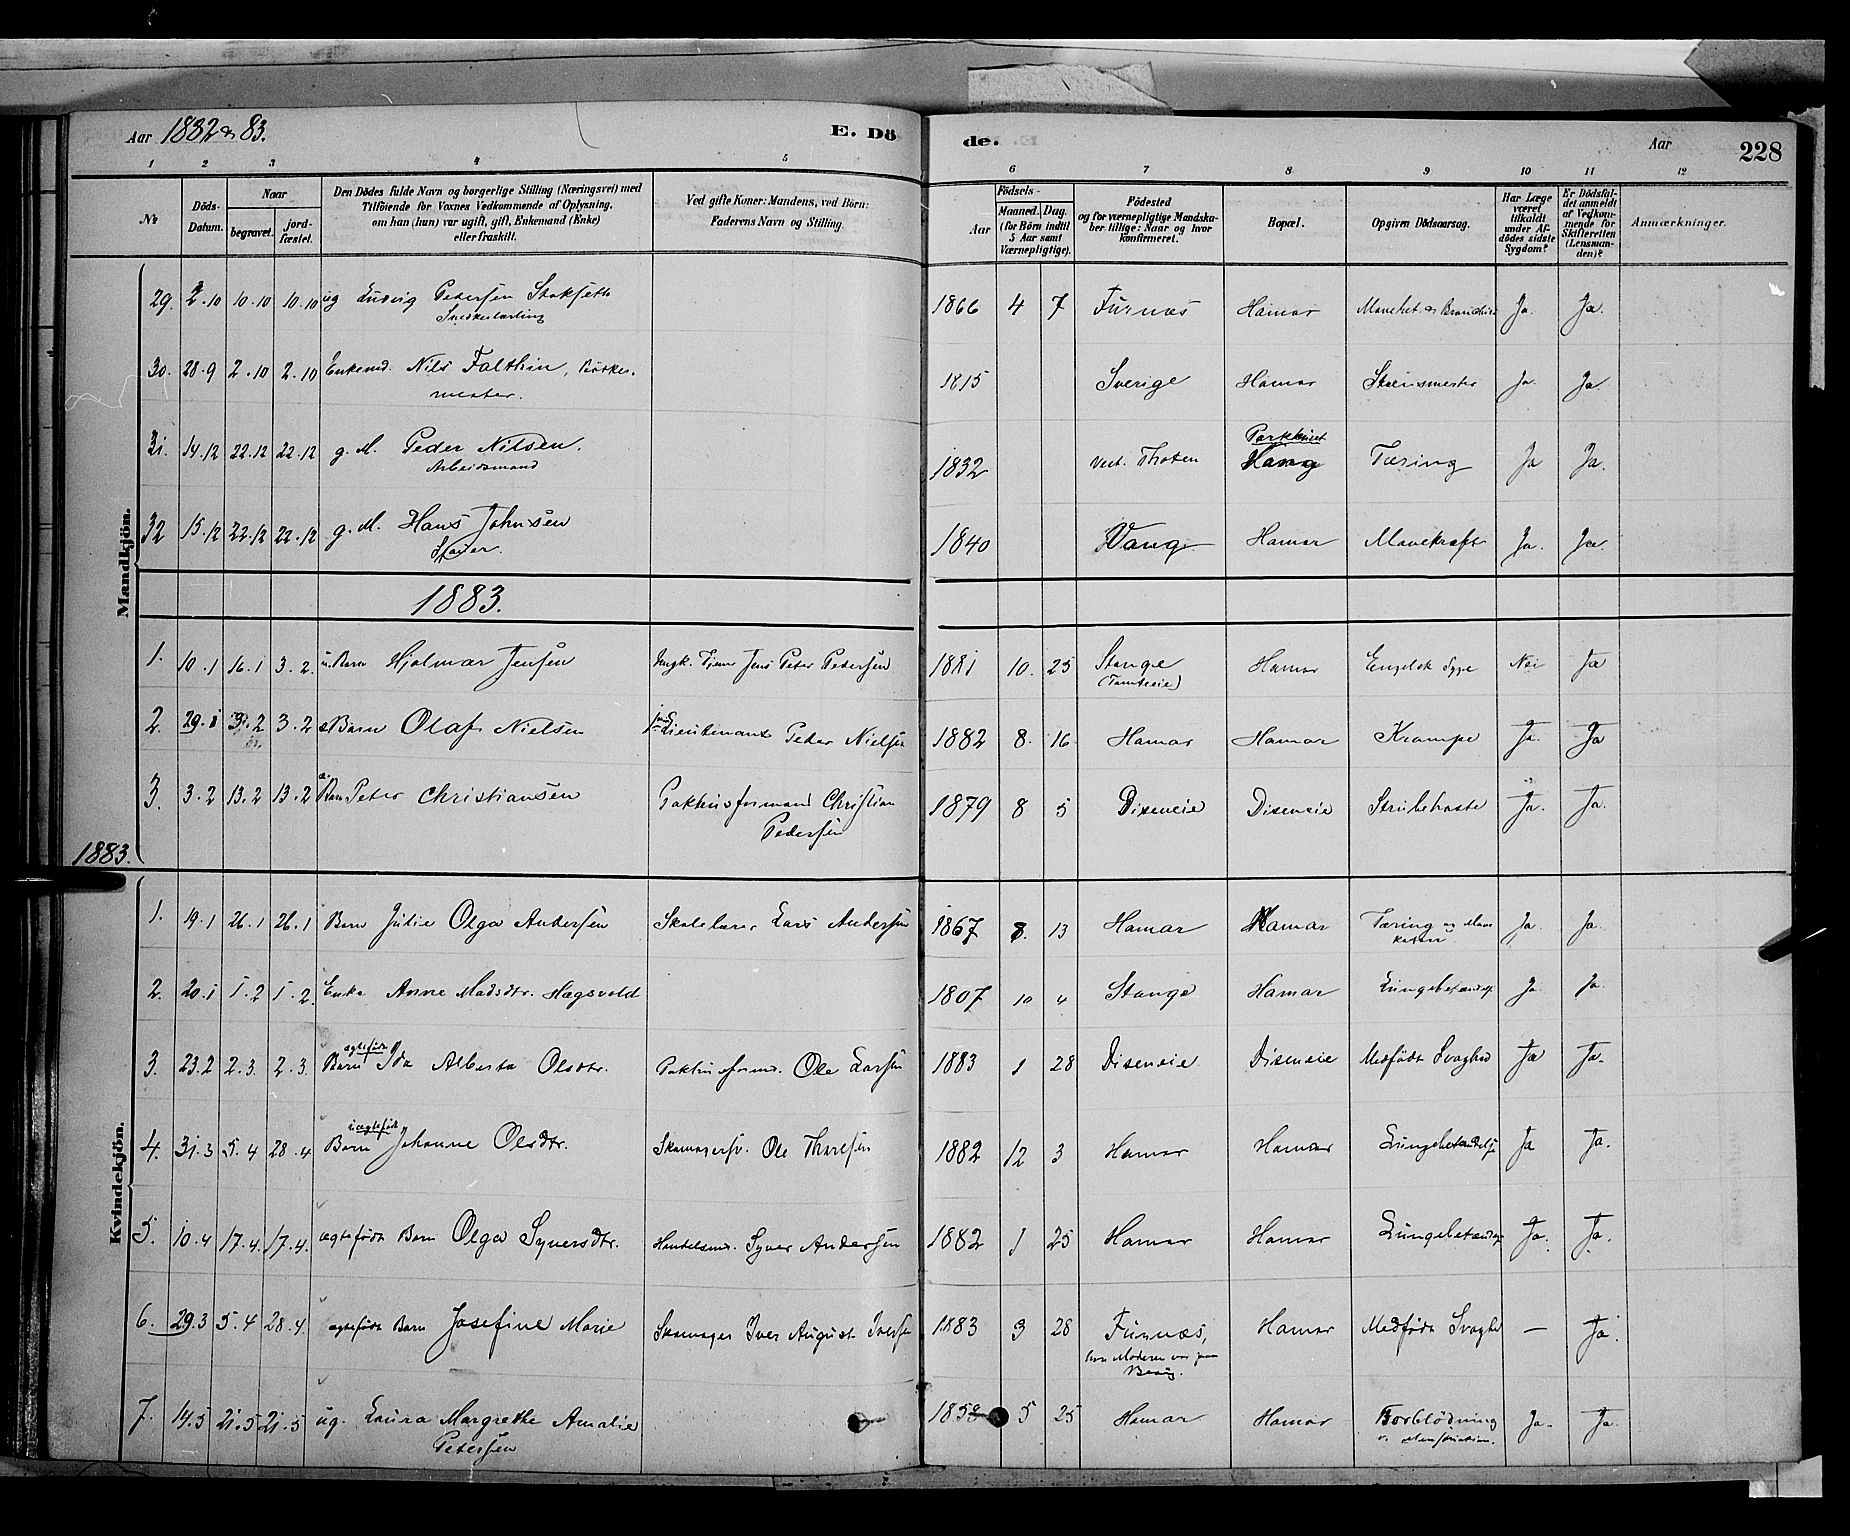 Aar 1882 & 83. E. Dö de. Aar 228
1 2 3 4 5 6 7 8 9 10 11 12
No Döds-Datum. Naar begravet. jordfæstet. Den Dödes fulde Navn og borgerlige Stilling (Næringsvei) med Tilföiende for Voxnes Vedkommende af Oplysning, om han (hun) var ugift, gift, Enkemand (Enke) eller fraskilt. Ved gifte Koner: Mandens, ved Börn: Faderens Navn og Stilling. Födsels- Aar Maaned. Dag. (for Börn indtil 5 Aar samt Værnepligtige). Födested og for værnepligtige Mandskaber tillige: Naar og hvor konfirmeret. Bopæl. Opgiven Dödsaarsag. Har Læge været tilkaldt under Afdödes sidste Sygdom? Er Dödsfaldet anmeldt af Vedkommende for Skifteretten (Lensmanden)? Anmærkninger.
Mandkjön.
29. 2.10 10.10 10.10 ug Ludvig Pedersen Stokseth 1866 4 7 Furnæs Hamar Ja. Ja.
Snedkerlærling
30. 28.9 2.10 2.10 Enkemd. Nils Falthin, 1815 Sverige Hamar Ja. Ja.
mester.
31. 14.12 22.12 22.12 g. M. Peder Nilsen. 1832 Vest. Thoten Tæring Ja Ja.
Arbeidsmand
32 15.12 22.12 22.12 g. M. Hans Johnsen 1840 Vang Hamar Mavekræft Ja. Ja.
1883.
1. 10.1 16.1 3.2. u. Barn Hjalmar Jensen Ungk. Tjener Jens Peter Pedersen 1881 10. 25 Stange Hamar Engelsk Syge Nei Ja
2. 29.1 3.2 3.2 Barn Olaf Nielsen Lieutenant Peder Nielsen 1882 8. 16 Hamar Hamar Krampe Ja. Ja
3. 3.2 13.2 13.2 Barn Peter Christiansen Pakhusformand Christian 1879 8 5 Diseneie Diseneie Strubehoste Ja. Ja.
Pedersen
1883.
Kvindekjön.
1. 19.1 26.1 26.1 Barn Julie Olga Andersen Lars Andersen 1867 8. 13 Hamar Hamar Tæring og Mave Ja. Ja.
2. 20.1 1.2 1.2. Enke Anne Madsdtr. Hægsvold 1807 10 4 Stange Hamar Lungebetændelse Ja. Ja
3. 23.2 2.3. 2.3. Barn ægtefödt Ida Alberta Olsdtr. Pakhusformd. Ole Larsen 1883 1 28 Diseneie. Diseneie Medfödt Svaghed Ja Ja.
4. 31.3 5.4 28.4 Barn uægtefödt Johanne Olsdtr. Skomagersv. Ole Thoresen 1882 12 3 Hamar Hamar Lungebetændelse Ja Ja.
5. 10.4 17.4. 17.4. ægtefödt Barn Olga Syversdtr. Handelsmd. Syver Andersen 1882 1 25 Hamar Hamar Lungebetændelse Ja. Ja.
6. 29.3 5.4 28.4. ægtefödt Barn Josefine Marie Skomager Iver August Iversen 1883 3 28 Furnæs, Hamar Medfödt Svaghed — Ja.
hvor Moderen var paa
Besög.
7. 14.5 21.5 21.5 ug. Laura Margrethe Amalie 5 25 Hamar Hamar Forblödning Ja. Ja.
Petersen